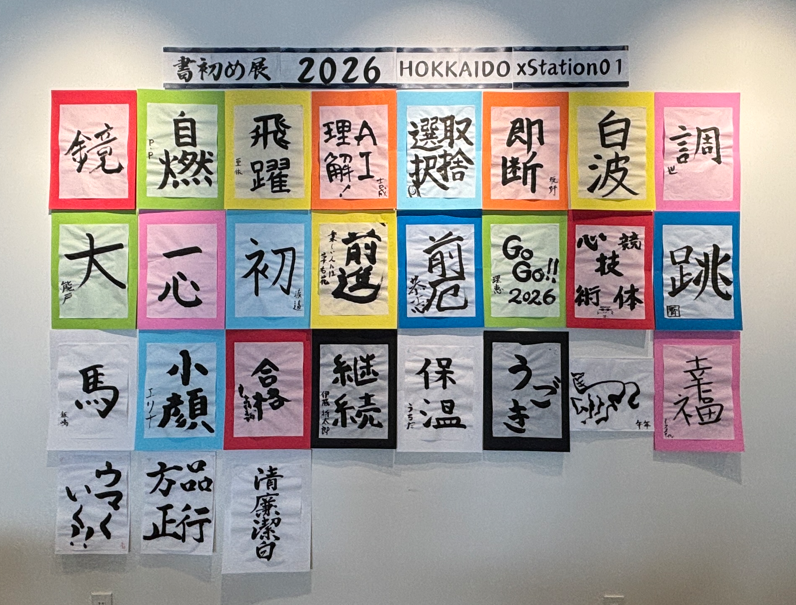 書初め展 2026 HOKKAIDO xStation01
鏡
自燃
飛躍
AI
理解!
取捨
選択
即断
白波
調
大
一心
初
前進
前厄
Go
Go!!
2026
心技体
競
術
跳
馬
小顔
エリナ
合格
継続
伊藤
保温
うちだ
うごき
午年
幸福
ウマく
いく!!
品行
方正
清廉潔白